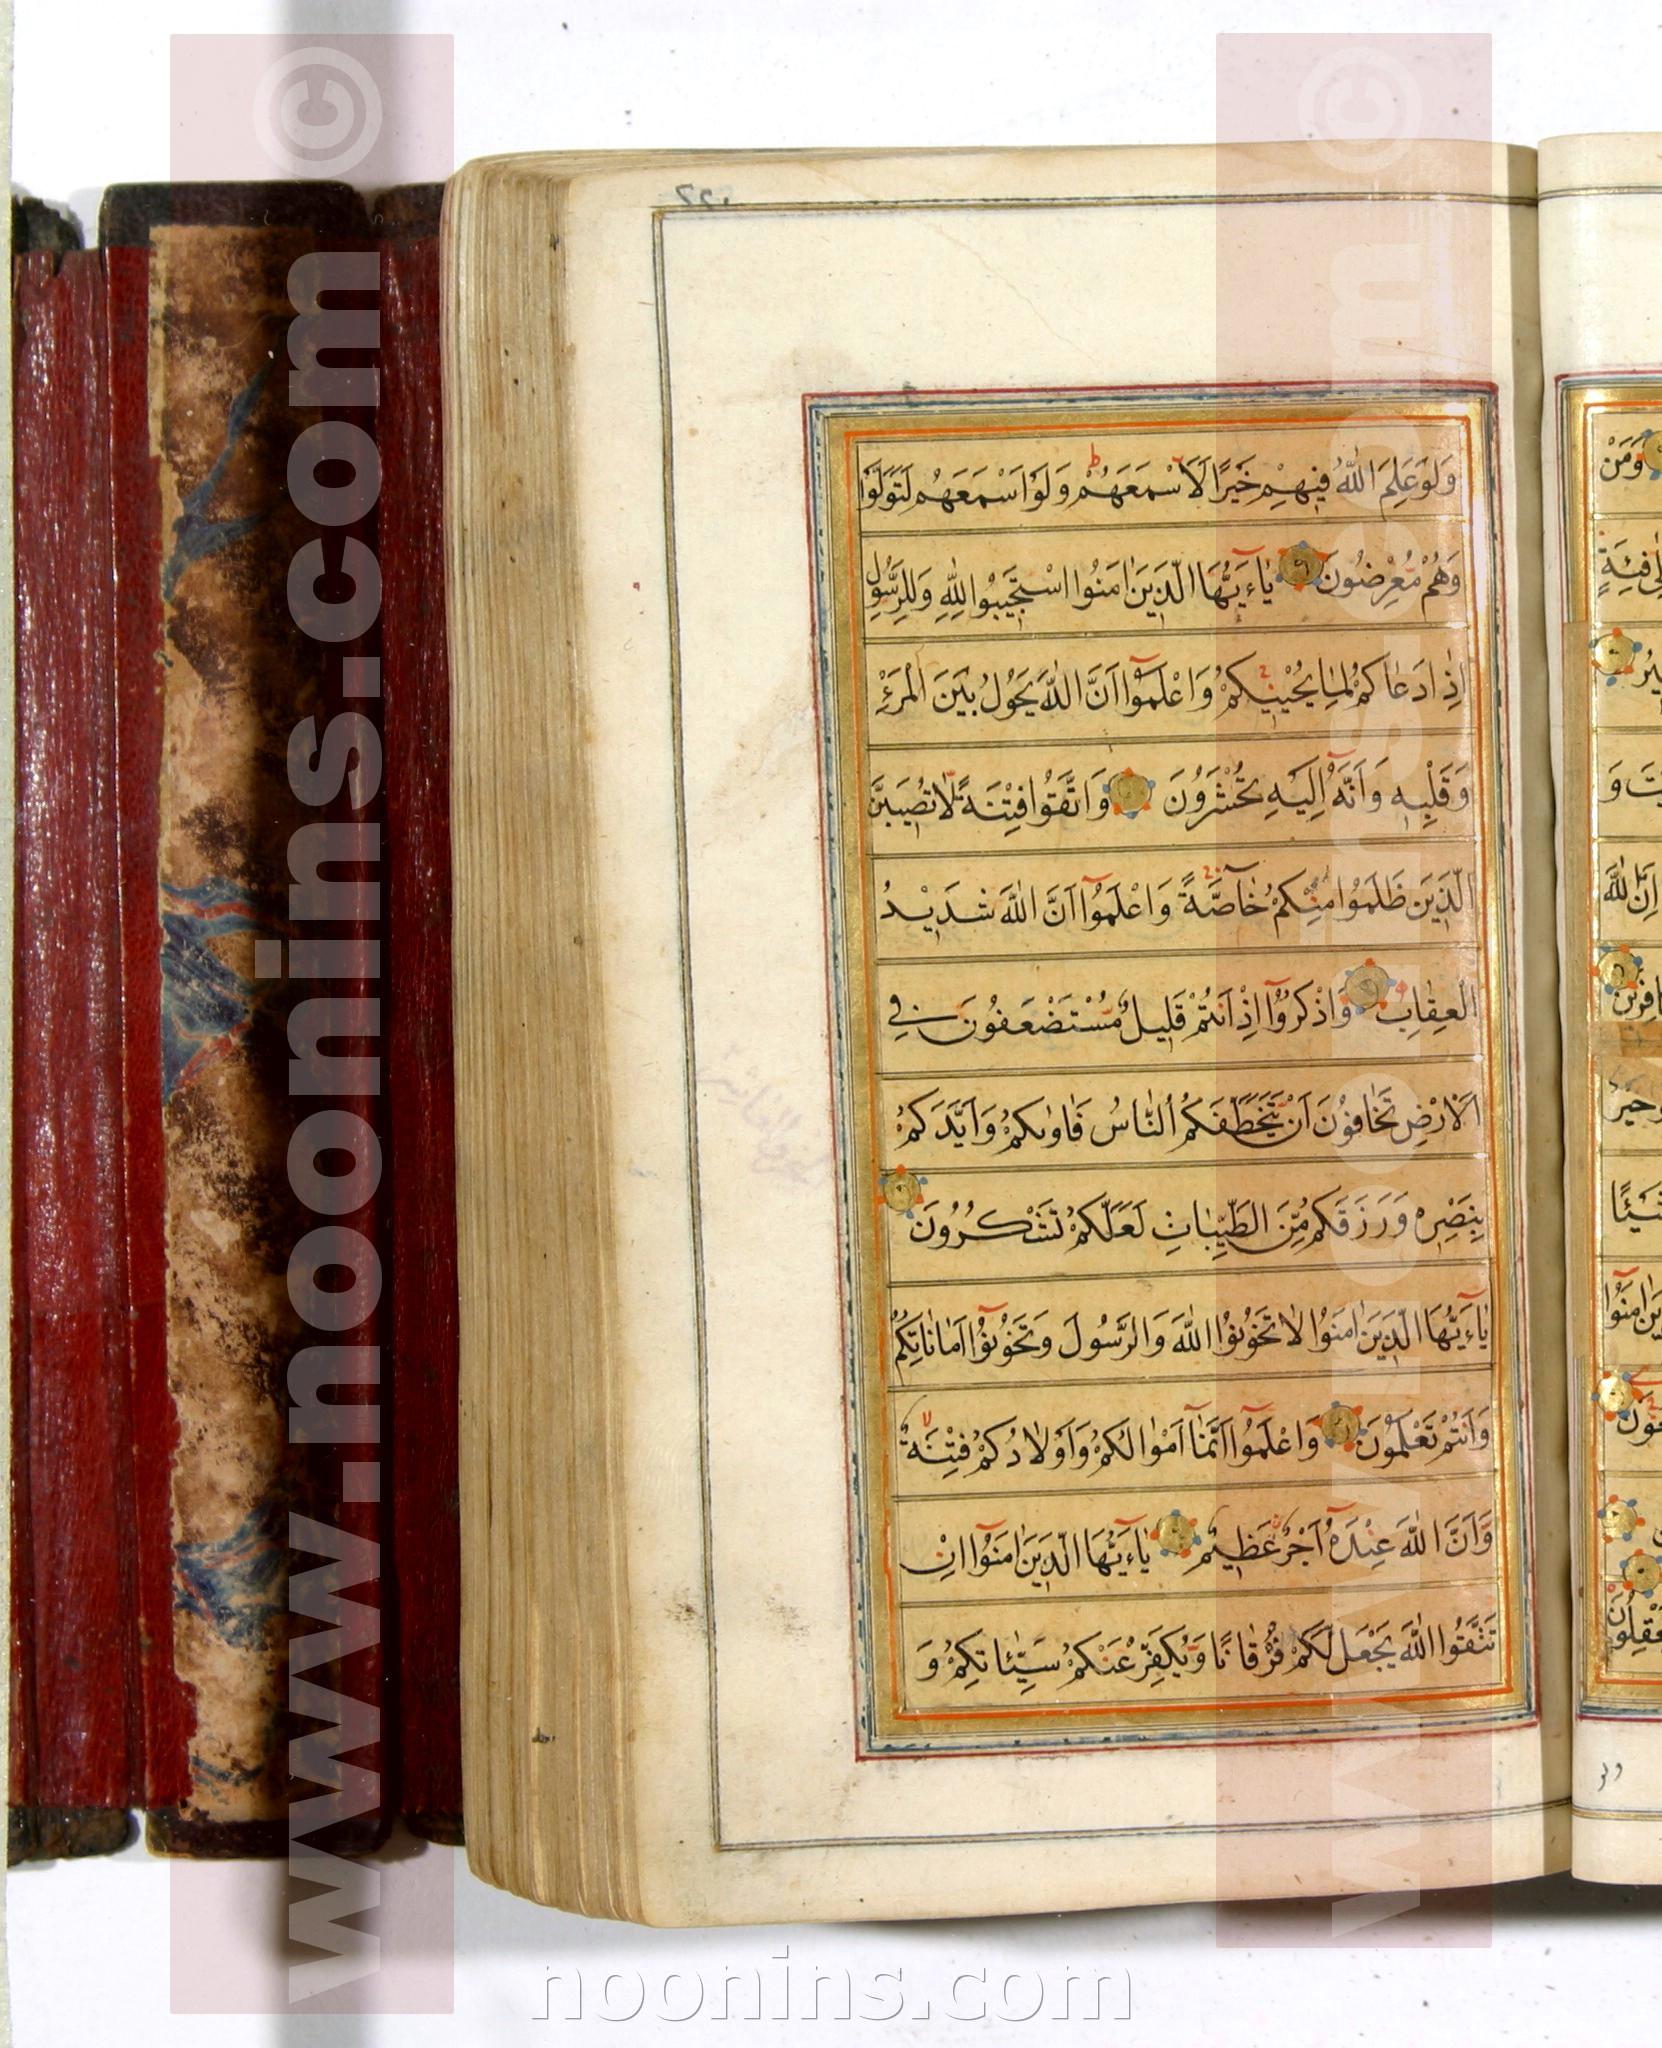 وَلَوْ عَلِمَ اللّٰهُ فِيهِمْ خَيْرًا لَاَسْمَعَهُمْ وَلَوْ اَسْمَعَهُمْ لَتَوَلَّوْا
وَهُمْ مُعْرِضُونَ يٰٓاءَيُّهَا الَّذِينَ اٰمَنُوا اسْتَجِيبُوا لِلّٰهِ وَلِلرَّسُولِ
اِذَا دَعَاكُمْ لِمَا يُحْيِيكُمْ وَاعْلَمُوٓا اَنَّ اللّٰهَ يَحُولُ بَيْنَ الْمَرْءِ
وَقَلْبِهِ وَاَنَّهُٓ اِلَيْهِ تُحْشَرُونَ وَاتَّقُوا فِتْنَةً لَا تُصِيبَنَّ
الَّذِينَ ظَلَمُوا مِنْكُمْ خَآصَّةً وَاعْلَمُوٓا اَنَّ اللّٰهَ شَدِيدُ
الْعِقَابِ وَاذْكُرُوٓا اِذْ اَنْتُمْ قَلِيلٌ مُسْتَضْعَفُونَ فِي
الْاَرْضِ تَخَافُونَ اَنْ يَتَخَطَّفَكُمُ النَّاسُ فَاٰوٰىكُمْ وَاَيَّدَكُمْ
بِنَصْرِهِ وَرَزَقَكُمْ مِنَ الطَّيِّبَاتِ لَعَلَّكُمْ تَشْكُرُونَ
يٰٓاءَيُّهَا الَّذِينَ اٰمَنُوا لَا تَخُونُوا اللّٰهَ وَالرَّسُولَ وَتَخُونُوٓا اَمَانَاتِكُمْ
وَاَنْتُمْ تَعْلَمُونَ وَاعْلَمُوٓا اَنَّمَآ اَمْوَالُكُمْ وَاَوْلَادُكُمْ فِتْنَةٌ
وَاَنَّ اللّٰهَ عِنْدَهُٓ اَجْرٌ عَظِيمٌ يٰٓاءَيُّهَا الَّذِينَ اٰمَنُوٓا اِنْ
تَتَّقُوا اللّٰهَ يَجْعَلْ لَكُمْ فُرْقَانًا وَيُكَفِّرْ عَنْكُمْ سَيِّئَاتِكُمْ وَ
وَمَنْ
ولو
www.noonins.com ©
www.noonins.com ©
noonins.com